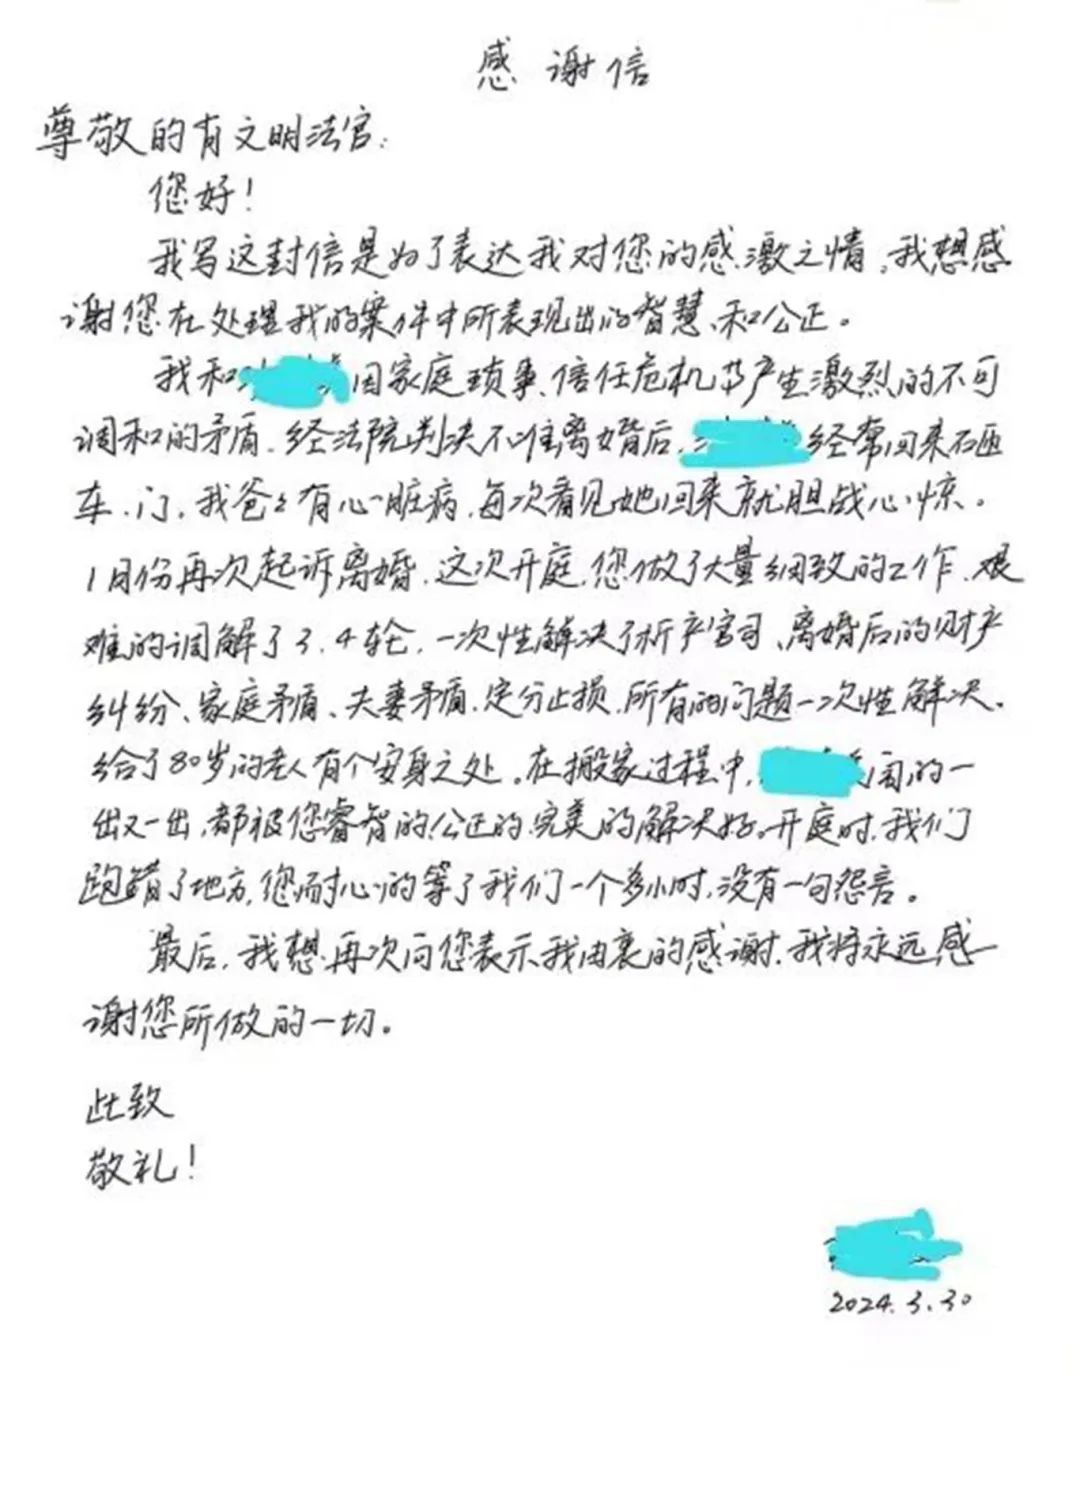 感谢信
尊敬的有文明法官:
您好!
我写这封信是为了表达我对您的感激之情,我想感
谢您在处理我的案件中所表现出的智慧、和公正。
我和 因家庭琐事、信任危机等产生激烈的不可
调和的矛盾.经法院判决不准离婚后, 经常回来砸
车、门,我爸爸有心脏病,每次看见她回来就胆战心惊.
1月份再次起诉离婚.这次开庭,您做了大量细致的工作、艰
难的调解了3.4轮,一次性解决了析产官司、离婚后的财产
纠纷、家庭矛盾、夫妻矛盾.定分止损.所有的问题一次性解决.
给了80岁的老人有个安身之处。在搬家过程中, 闹的一
出又一出,都被您睿智的.公正的.完美的解决好。开庭时,我们
跑错了地方,您耐心的等了我们一个多小时,没有一句怨言。
最后,我想再次向您表示我由衷的感谢.我将永远感
谢您所做的一切。
此致
敬礼!
2024.3.30